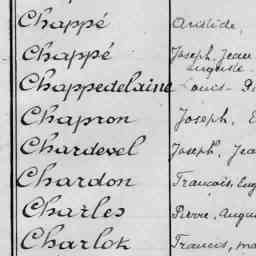 Chappé Aristide,
Chappé Joseph, Jean
Auguste
Chappedelaine Louis
Chapron Joseph, E
Chardevel Joseph, Jea
Chardon François, Eug
Charles Pierre, Augu
Charlok Francis, ma